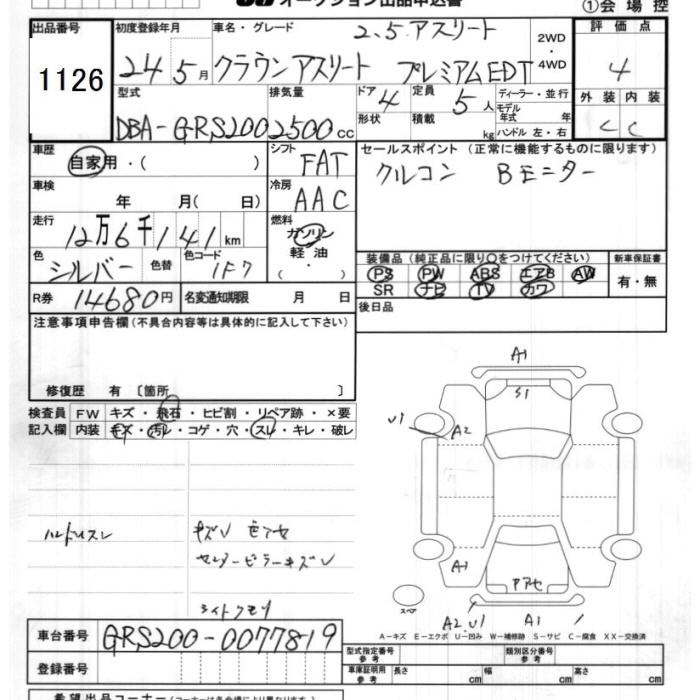 オークション出品申込書
①会場控
出品番号
1126
初度登録年月
24 5月
車名・グレード
2.5アスリート
クラウンアスリート プレミアムEDT
2WD・4WD
評価点
4
型式
DBA-GRS200
排気量
2500cc
ドア 4
形状
定員 5人
積載 kg
ディーラー・並行
モデル年式 年
ハンドル 左・右
外装 内装
C C
車歴
自家用・( )
シフト
FAT
セールスポイント (正常に機能するものに限ります)
クルコン Bモニター
車検
年 月( 日)
冷房
AAC
走行
12万6千141km
燃料
ガソリン
軽油
・( )
色
シルバー
色替
色コード
1F7
装備品 (純正品に限り○をつけてください)
PS PW ABS エアB AW
SR ナビ TV カワ
新車保証書
有・無
R券 14680円
名変通知期限 月 日
後日品
注意事項申告欄 (不具合内容等は具体的に記入して下さい)
修復歴 有 〔箇所 〕
検査員記入欄
FW キズ・飛石・ヒビ割・リペア跡・×要
内装 キズ・汚レ・コゲ・穴・スレ・キレ・破レ
ハンドルスレ
キズU
センターピラーキズU
ライトクモリ
A1
S1
U1
A2
A1
アアセ
スペア
A2 U1
A1
A-キズ E-エクボ U-凹み W-補修跡 S-サビ C-腐食 XX-交換済
車台番号
GRS200-0077819
登録番号
型式指定番号 参考
類別区分番号 参考
車庫証明用 参考
長さ cm
幅 cm
高さ cm
希望出品コーナー